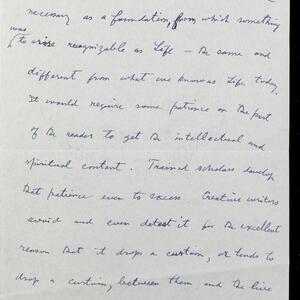 necessary as a foundation, from which something
was
to arise recognizable as Life — the same and
different from what we know as Life today.
It would require some patience on the part
of the reader to get the intellectual and
spiritual content. Trained scholars develop
that patience even to excess Creative writers
avoid and even detest it for the excellent
reason that it drops a curtain, or tends to
drop a curtain, between them and the live